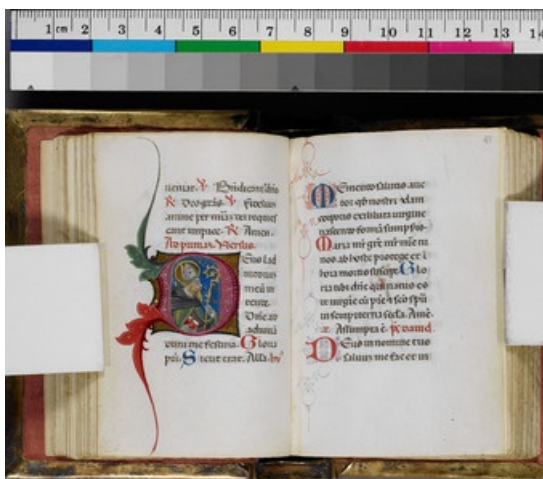 1 cm 2 3 4 5 6 7 8 9 10 11 12 13 14
ueniat. V. Benedicam9 dño
R. Deo gräs. V. Fidelium
anime per
R. Amen.
Ad primam. Versus.
Eus in ad
iutoriu
meu in
tende.
Dñe ad
adiuuā
dum me festina. Gloria
pri. Sicut erat. Alla. hy9
Memento salutis auc
tor qd nostri
corporis ex illibata uirgine
nascendo formā sumpsis
Maria mr gre mr mie tu
nos ab hoste protege et
hora mortis suscipe. Glo
ria tibi dñe qui natus es
de uirgie cū pre
in sempiterna secla. Amē.
Assumpta ē. ps dauid.
Deus in nomine tuo
saluum me fac et in